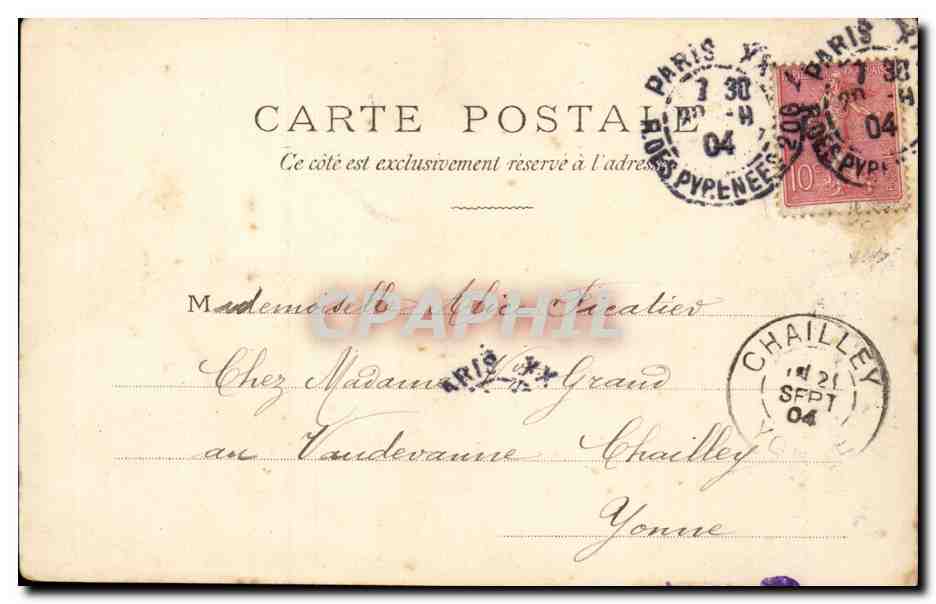 CARTE POSTALE
Ce côté est exclusivement réservé à l'adresse
PARIS XX
7 30
20 -H
04
R.DES PYRENEES 206
PARIS XX
7 30
20 -H
04
R.DES PYRENEES
10
Mademoiselle Alice
CPAPHIL
Chez Madame Vve Grand
PARIS XX
au Vaudevanne Chailley
Yonne
CHAILLEY
21
SEPT
04